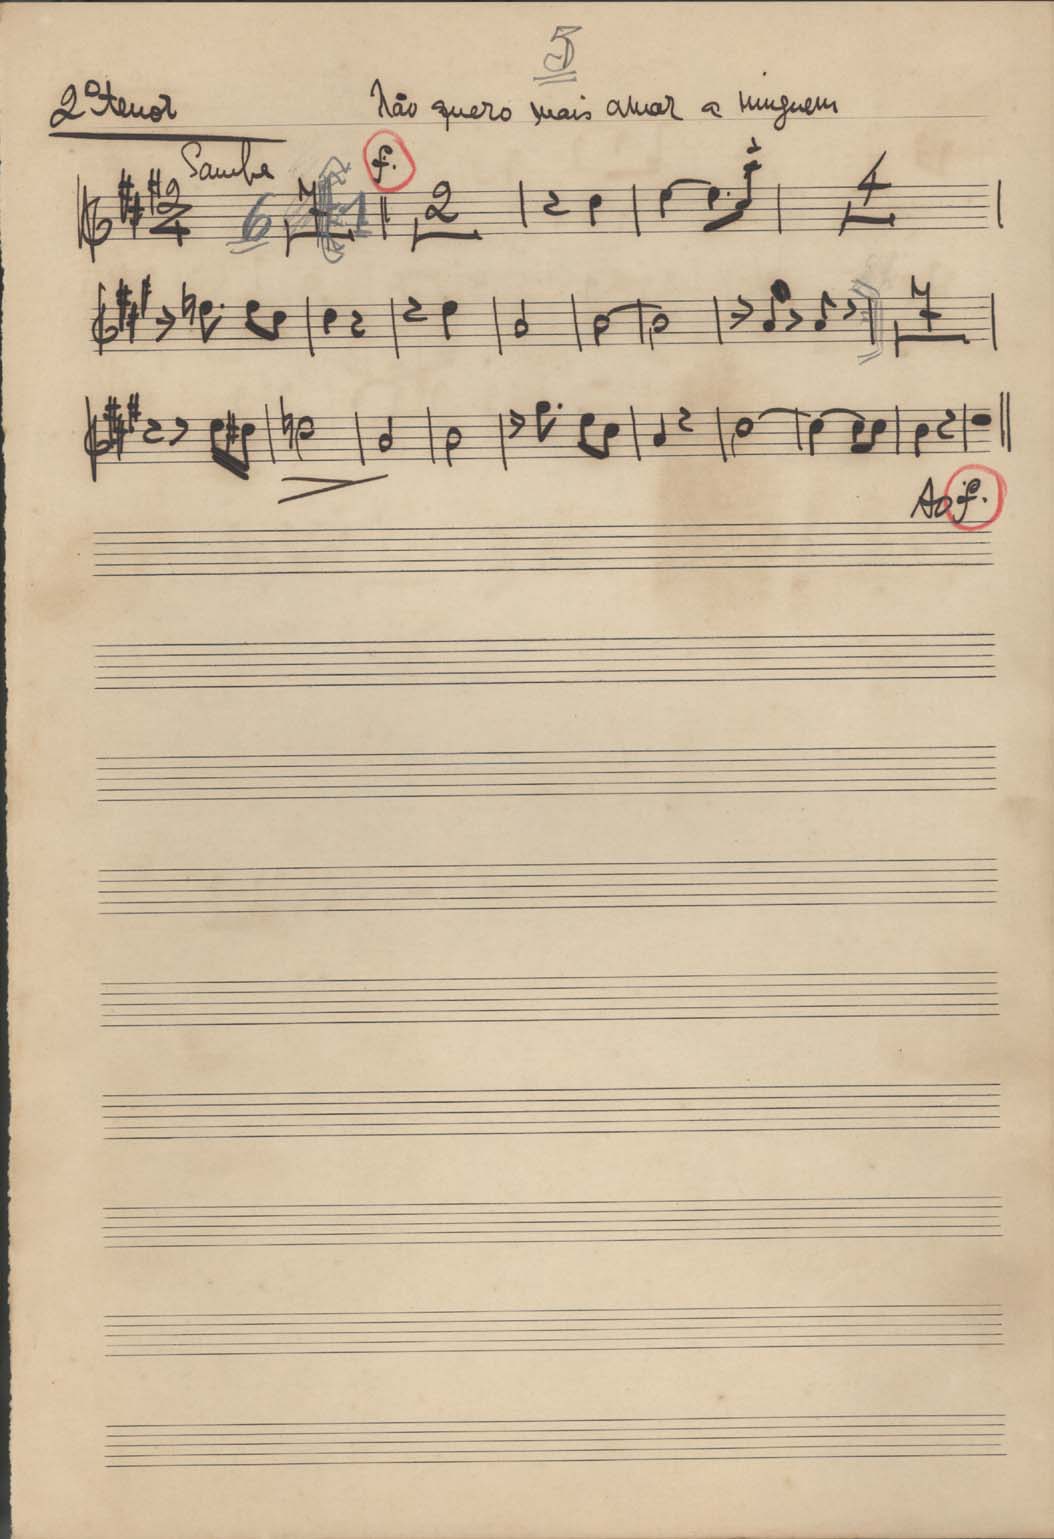 5
2º tenor Não quero mais amar a ninguem
Samba f.
2 4 6 7 1 2 4
7
Ao f.